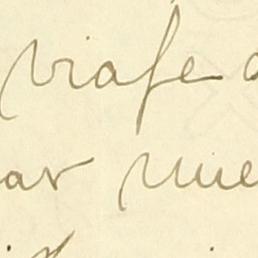 viaje
ar nue